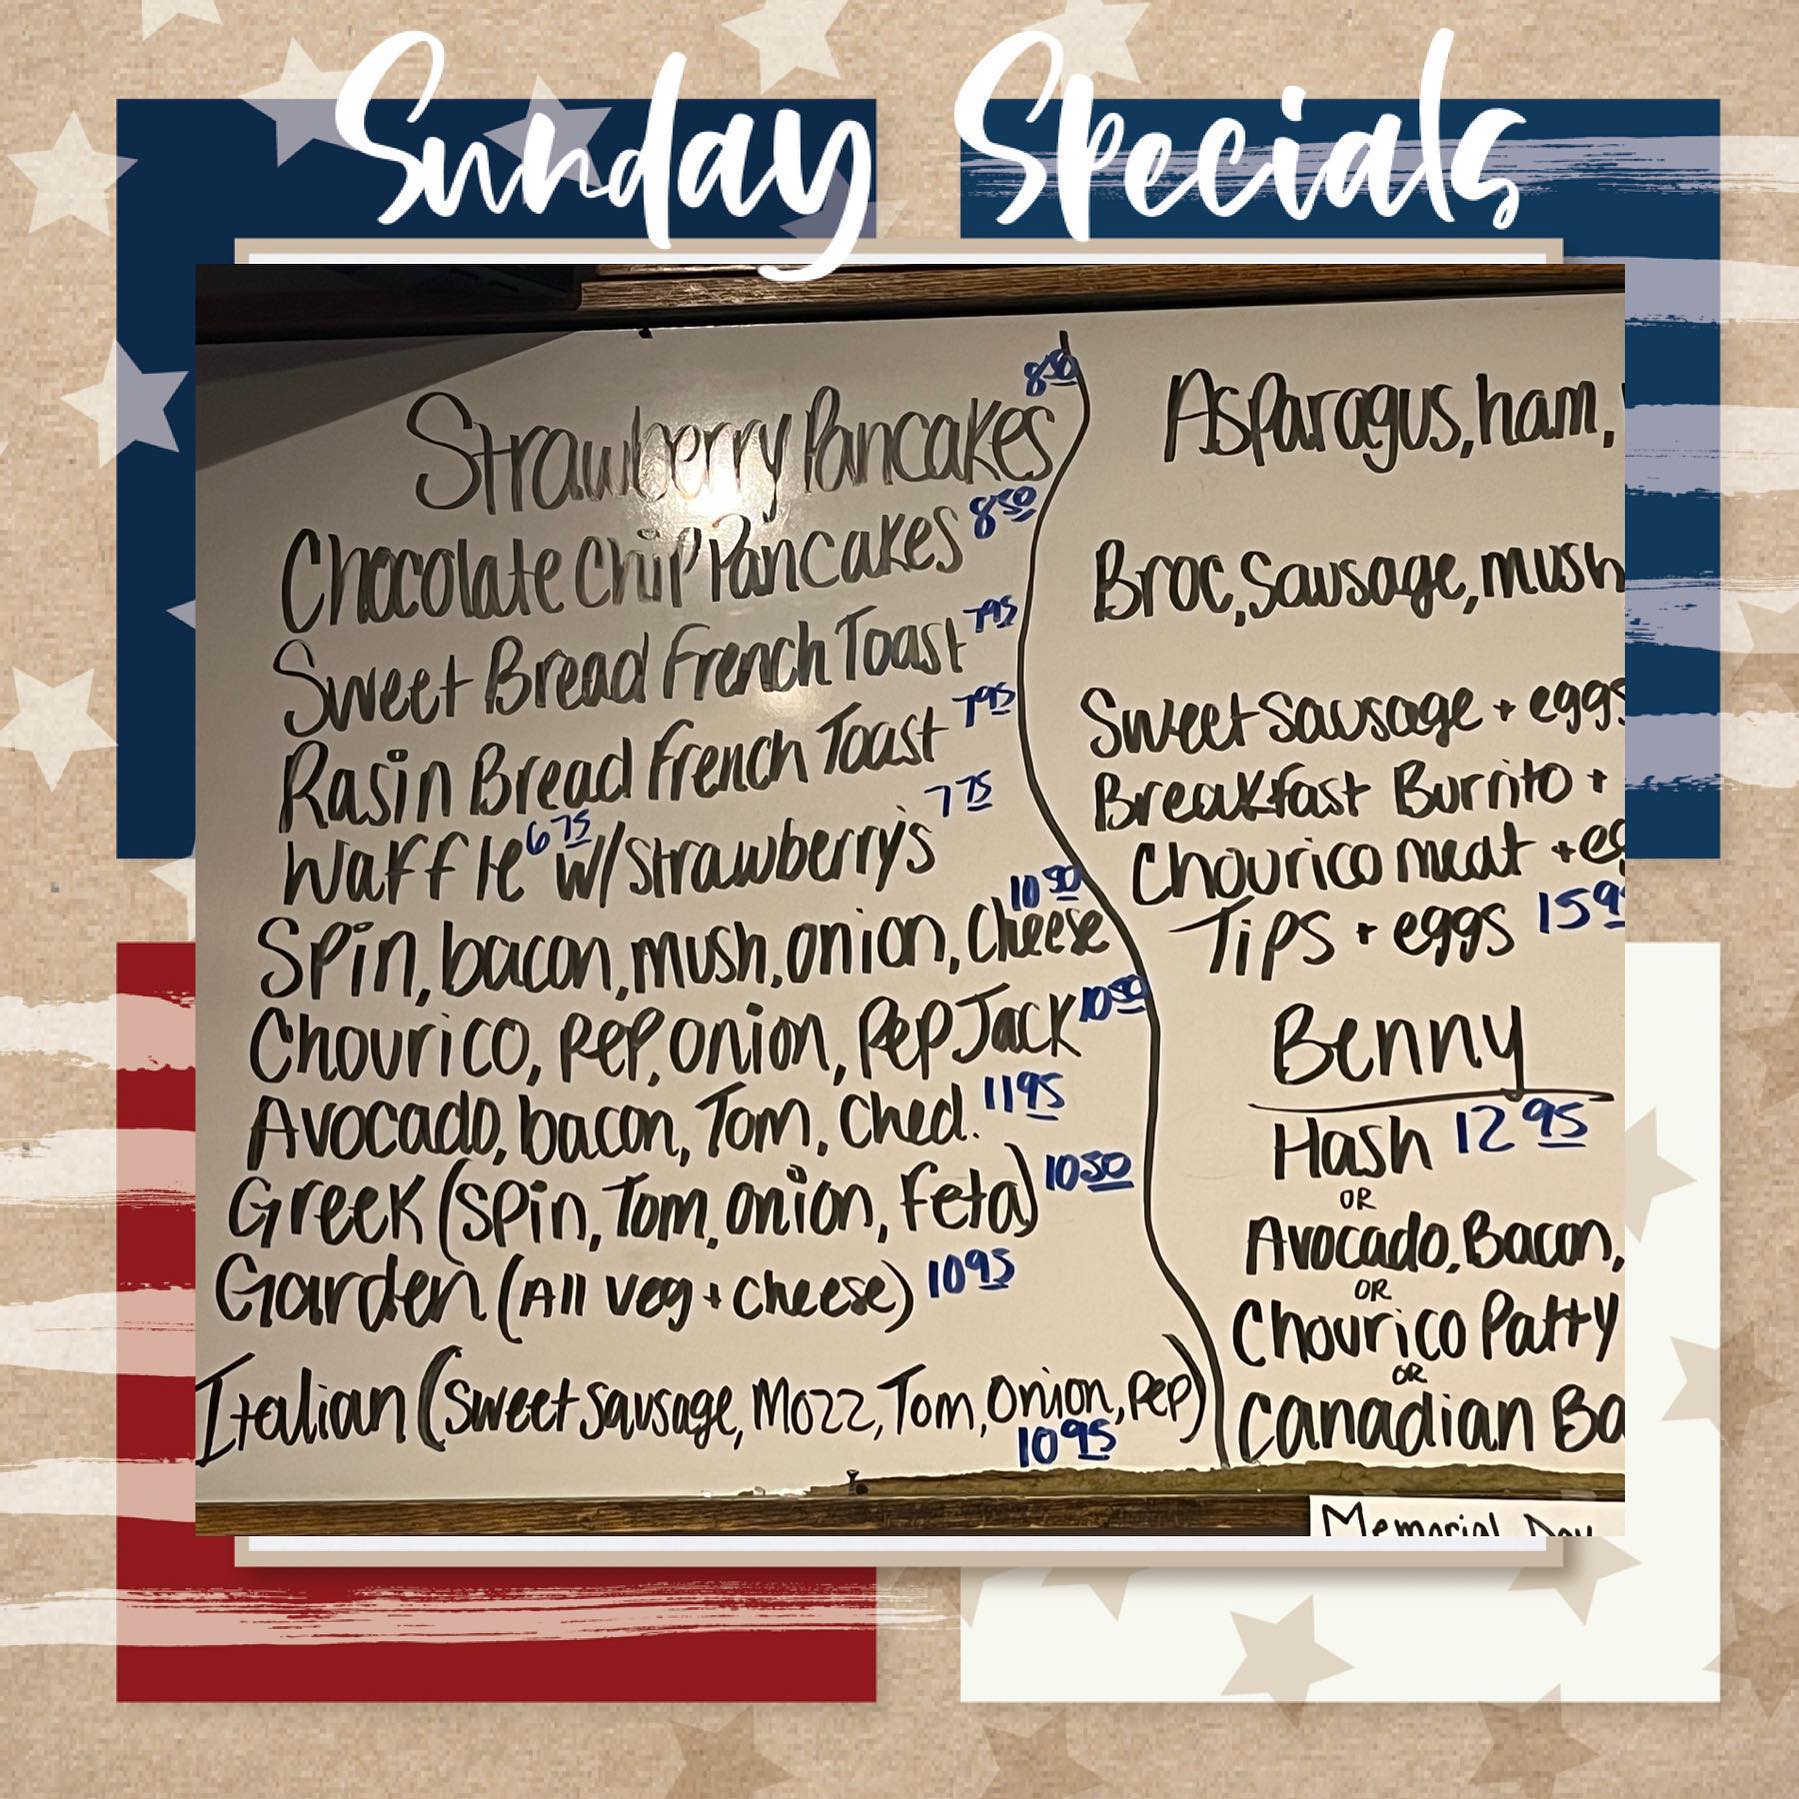 Sunday Specials
Strawberry Pancakes 8 50
Chocolate Chip Pancakes 8 50
Sweet Bread French Toast 7 95
Rasin Bread French Toast 7 95
Waffle 6 75 w/strawberry's 7 75
Spin, bacon, mush, onion, Cheese 10 50
Chourico, Pep, onion, PepJack 10 50
Avocado, bacon, Tom, Ched. 11 95
Greek (Spin, Tom, onion, Feta) 10 50
Garden (All veg + cheese) 10 95
Italian (Sweet Sausage, Mozz, Tom, Onion, Pep)
10 95
Asparagus, ham,
Broc, Sausage, mush
Sweet Sausage + eggs
Breakfast Burrito +
Chourico meat + eg
Tips + eggs 15 9
Benny
Hash 12 95
OR
Avocado, Bacon,
OR
Chourico Patty
OR
Canadian Ba
Memorial Day